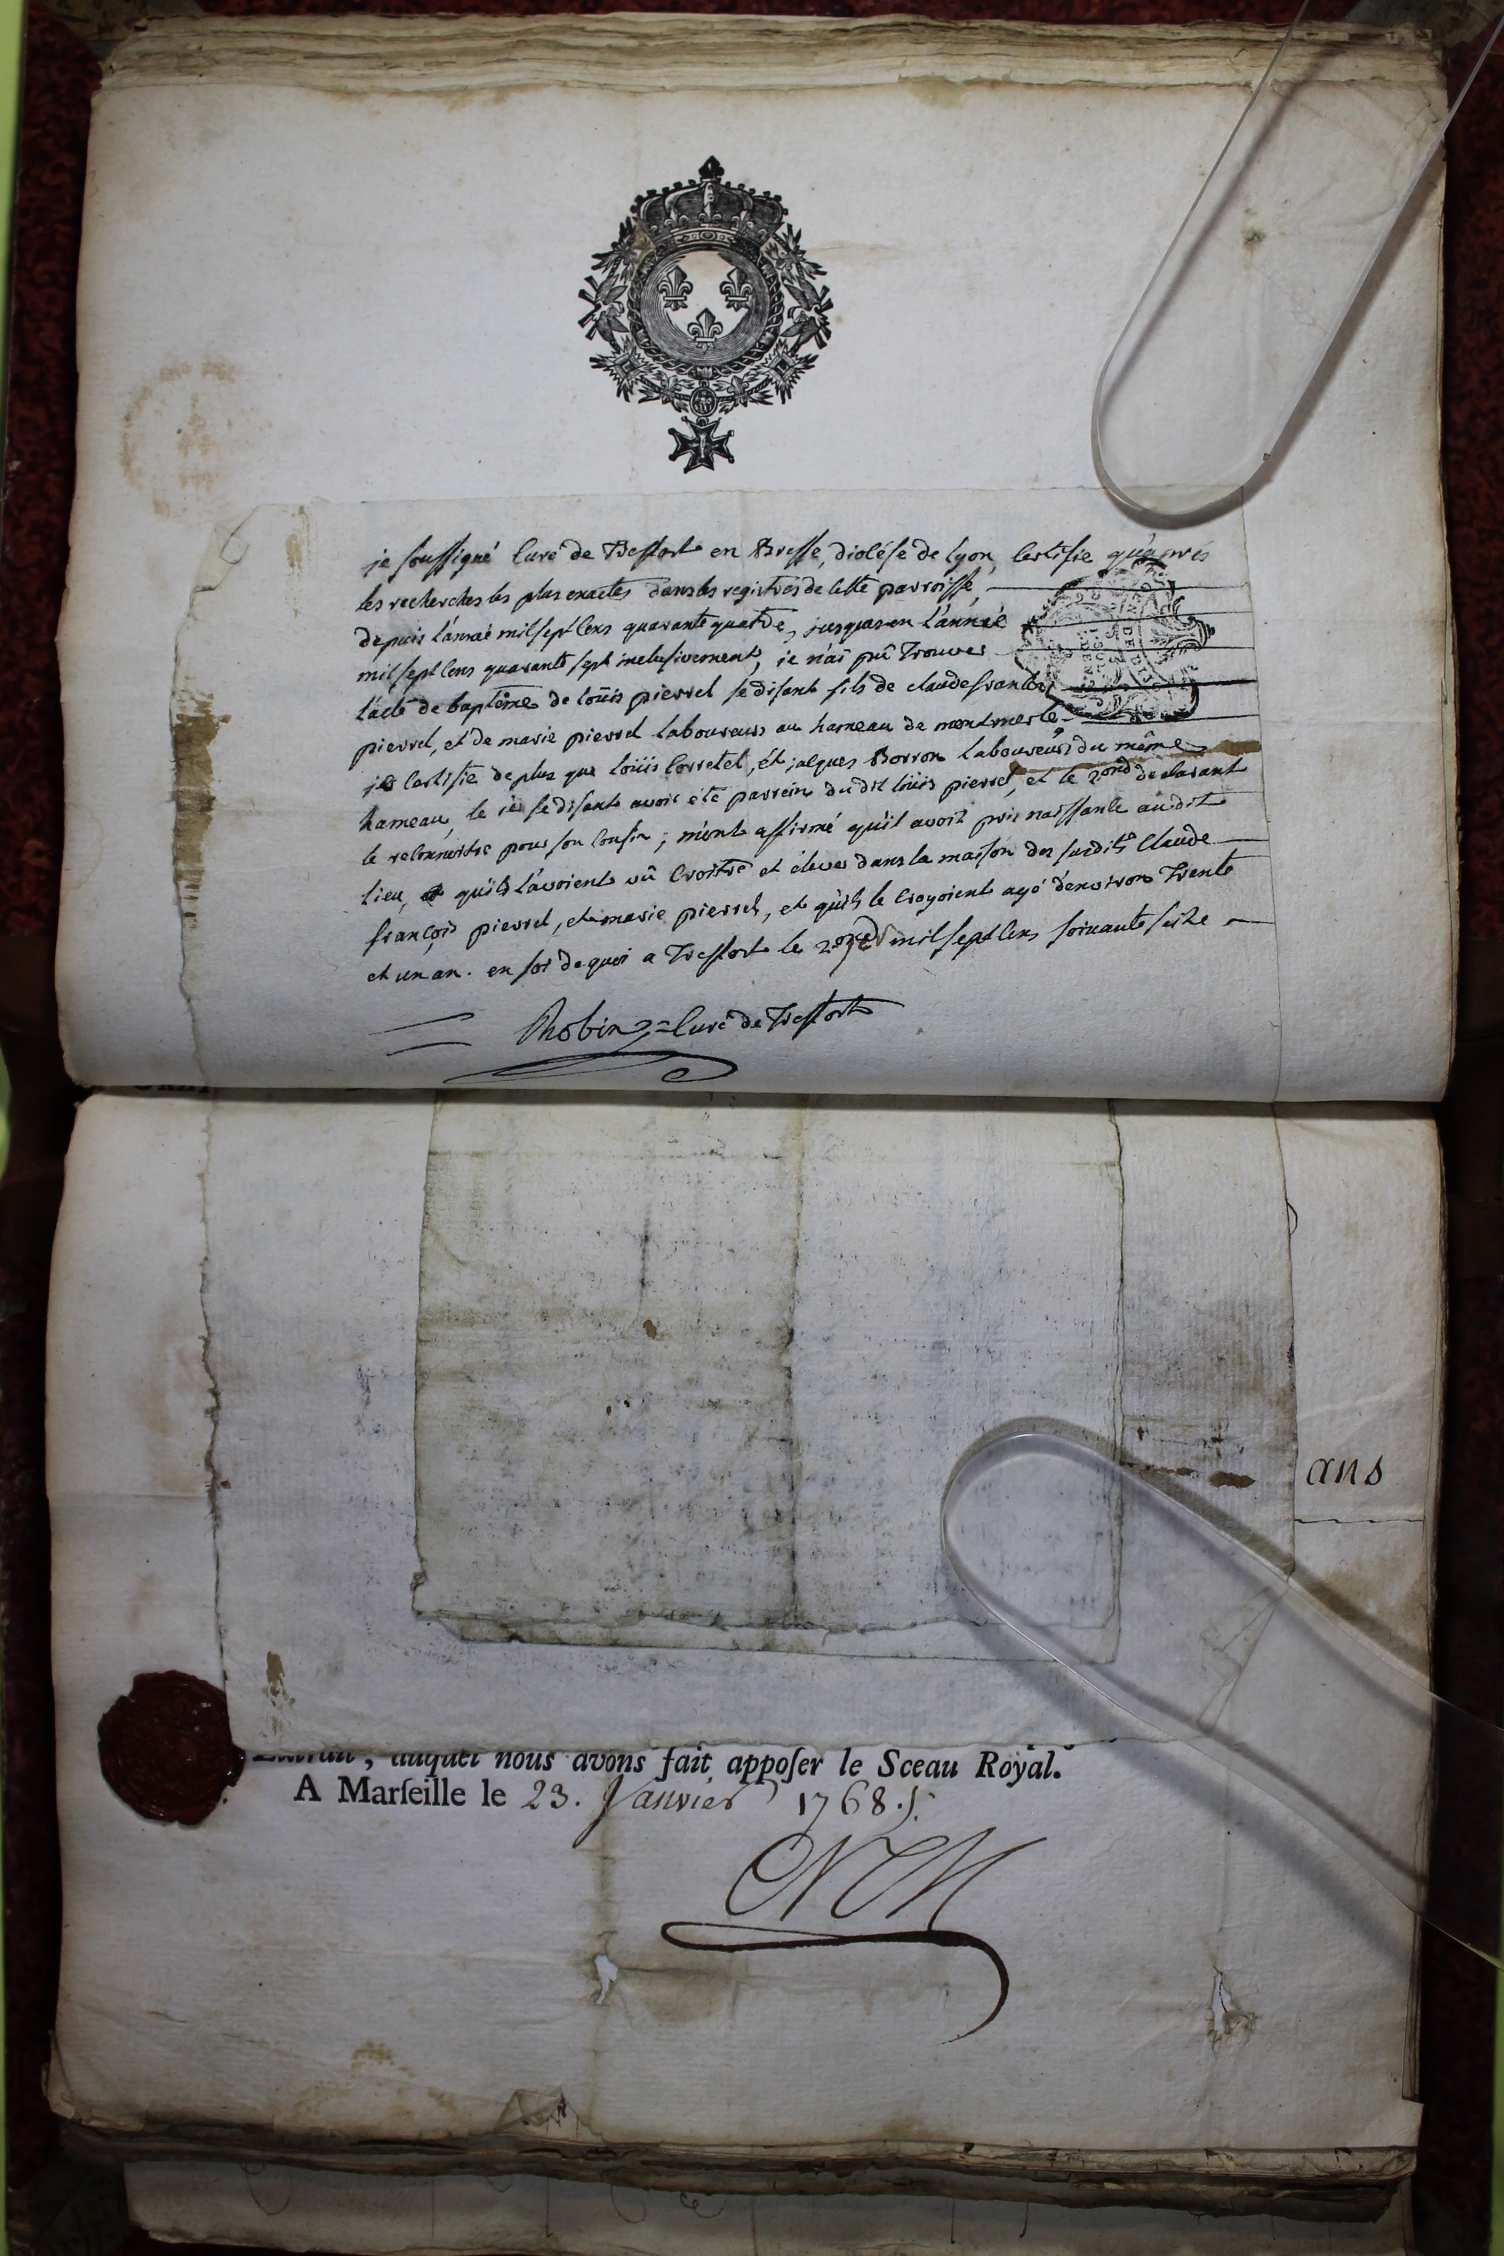 je soussigné Curé de Treffort en Bresse, diocése de Lyon, Certifie qu'aprés
les recherches les plus exactes dans les registres de cette parroisse,
depuis l'année mil sept Cens quarante quatre, jusques en L'année
mil sept Cens quarante sept inclusivement, je n'ai pû Trouver
l'acte de baptême de loüis pierrel se disant fils de claude francois
pierrel, et de marie pierrel laboureurs au hameau de montmerle
je Certifie de plus que loüis Corretel, et jacques Borron laboureurs du même
hameau, le 1er se disant avoir été parrein du dit loüis pierrel, et le 2ond declarant
le reconnoitre pour son Cousin; m'ont affirmé qu'il avoit pris naissance au dit
lieu, qu'ils l'avoient vû Croitre et élever dans la maison des susdits Claude
françois pierrel, et marie pierrel, et qu'ils le Croyoient agé d'environ Trente
et un an. en foi de quoi a Treffort le mil sept Cens soixante seize
Robin = Curé de Treffort
ans
auquel nous avons fait apposer le Sceau Royal.
A Marseille le 23. Janvier 1768.